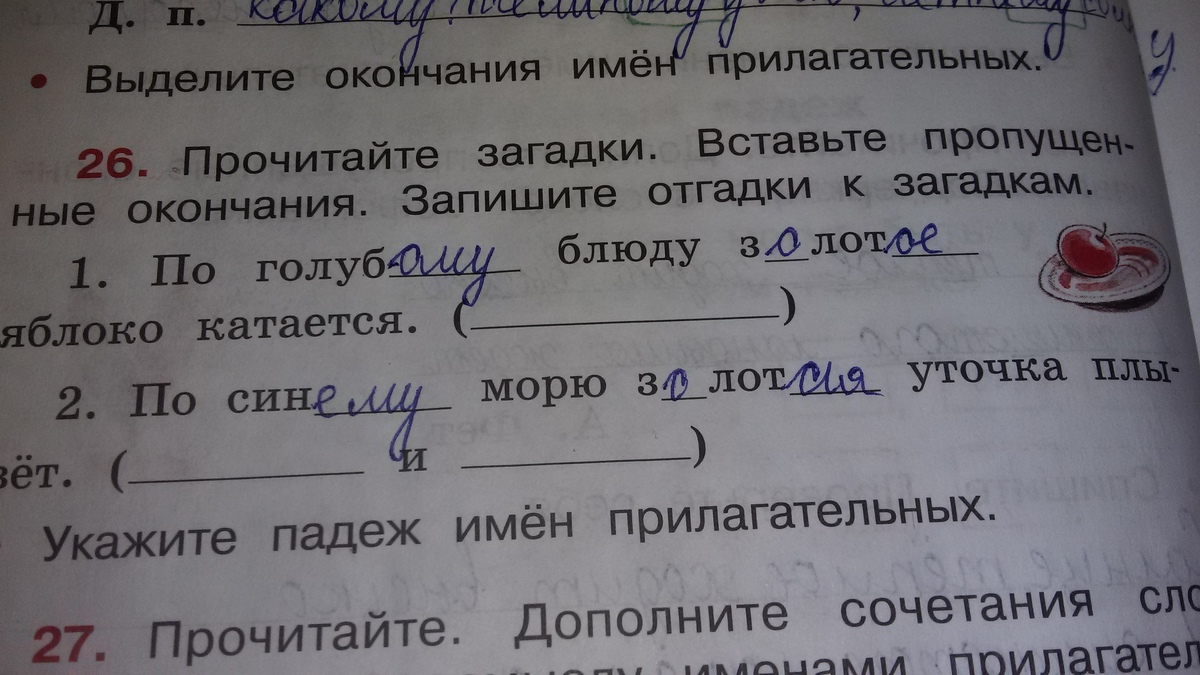 Д. п. какому?
• Выделите окончания имён прилагательных.
у
26. Прочитайте загадки. Вставьте пропущен-
ные окончания. Запишите отгадки к загадкам.
1. По голубому блюду золотое
яблоко катается. (____)
2. По синему морю золотая уточка плы-
вёт. (____ и ____)
Укажите падеж имён прилагательных.
27. Прочитайте. Дополните сочетания сло
именами прилагател